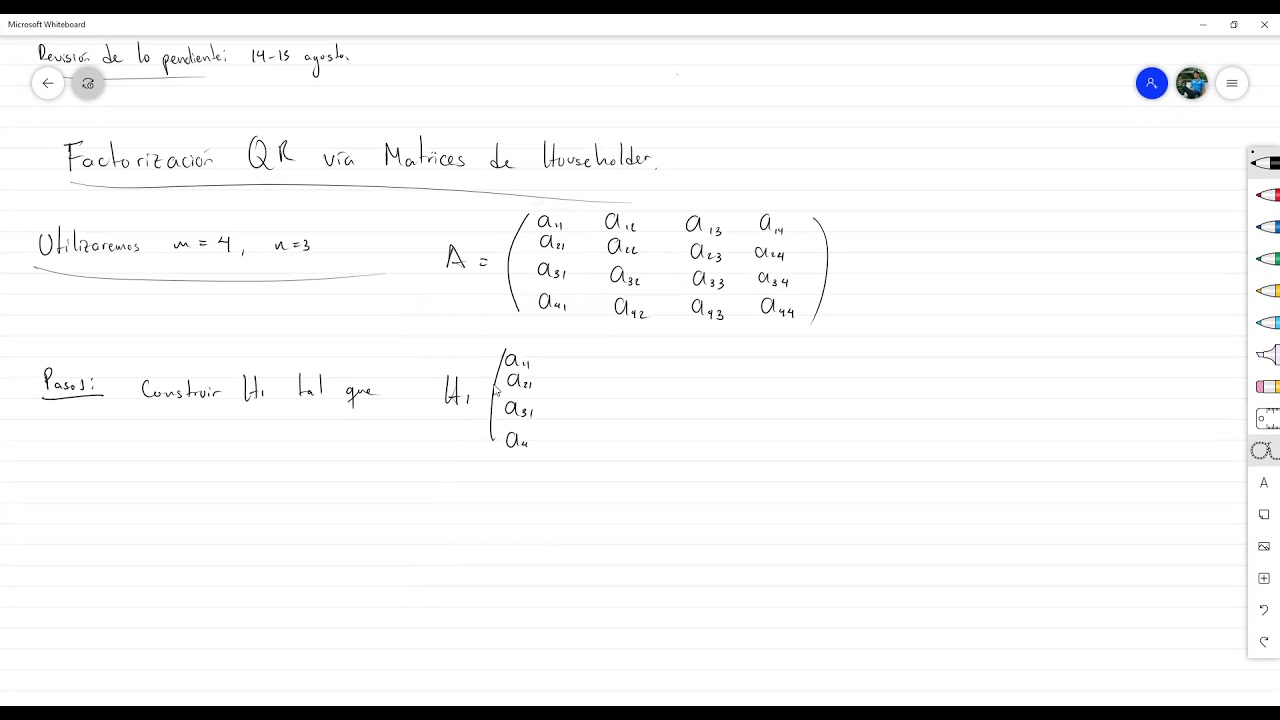 Microsoft Whiteboard
Revisión de lo pendiente: 14-15 agosto.
Factorización QR vía Matrices de Householder.
Utilizaremos m = 4, n = 3
A = ( a11 a12 a13 a14
a21 a22 a23 a24
a31 a32 a33 a34
a41 a42 a43 a44 )
Pasos: Construir H1 tal que H1 ( a11
a21
a31
a4
A